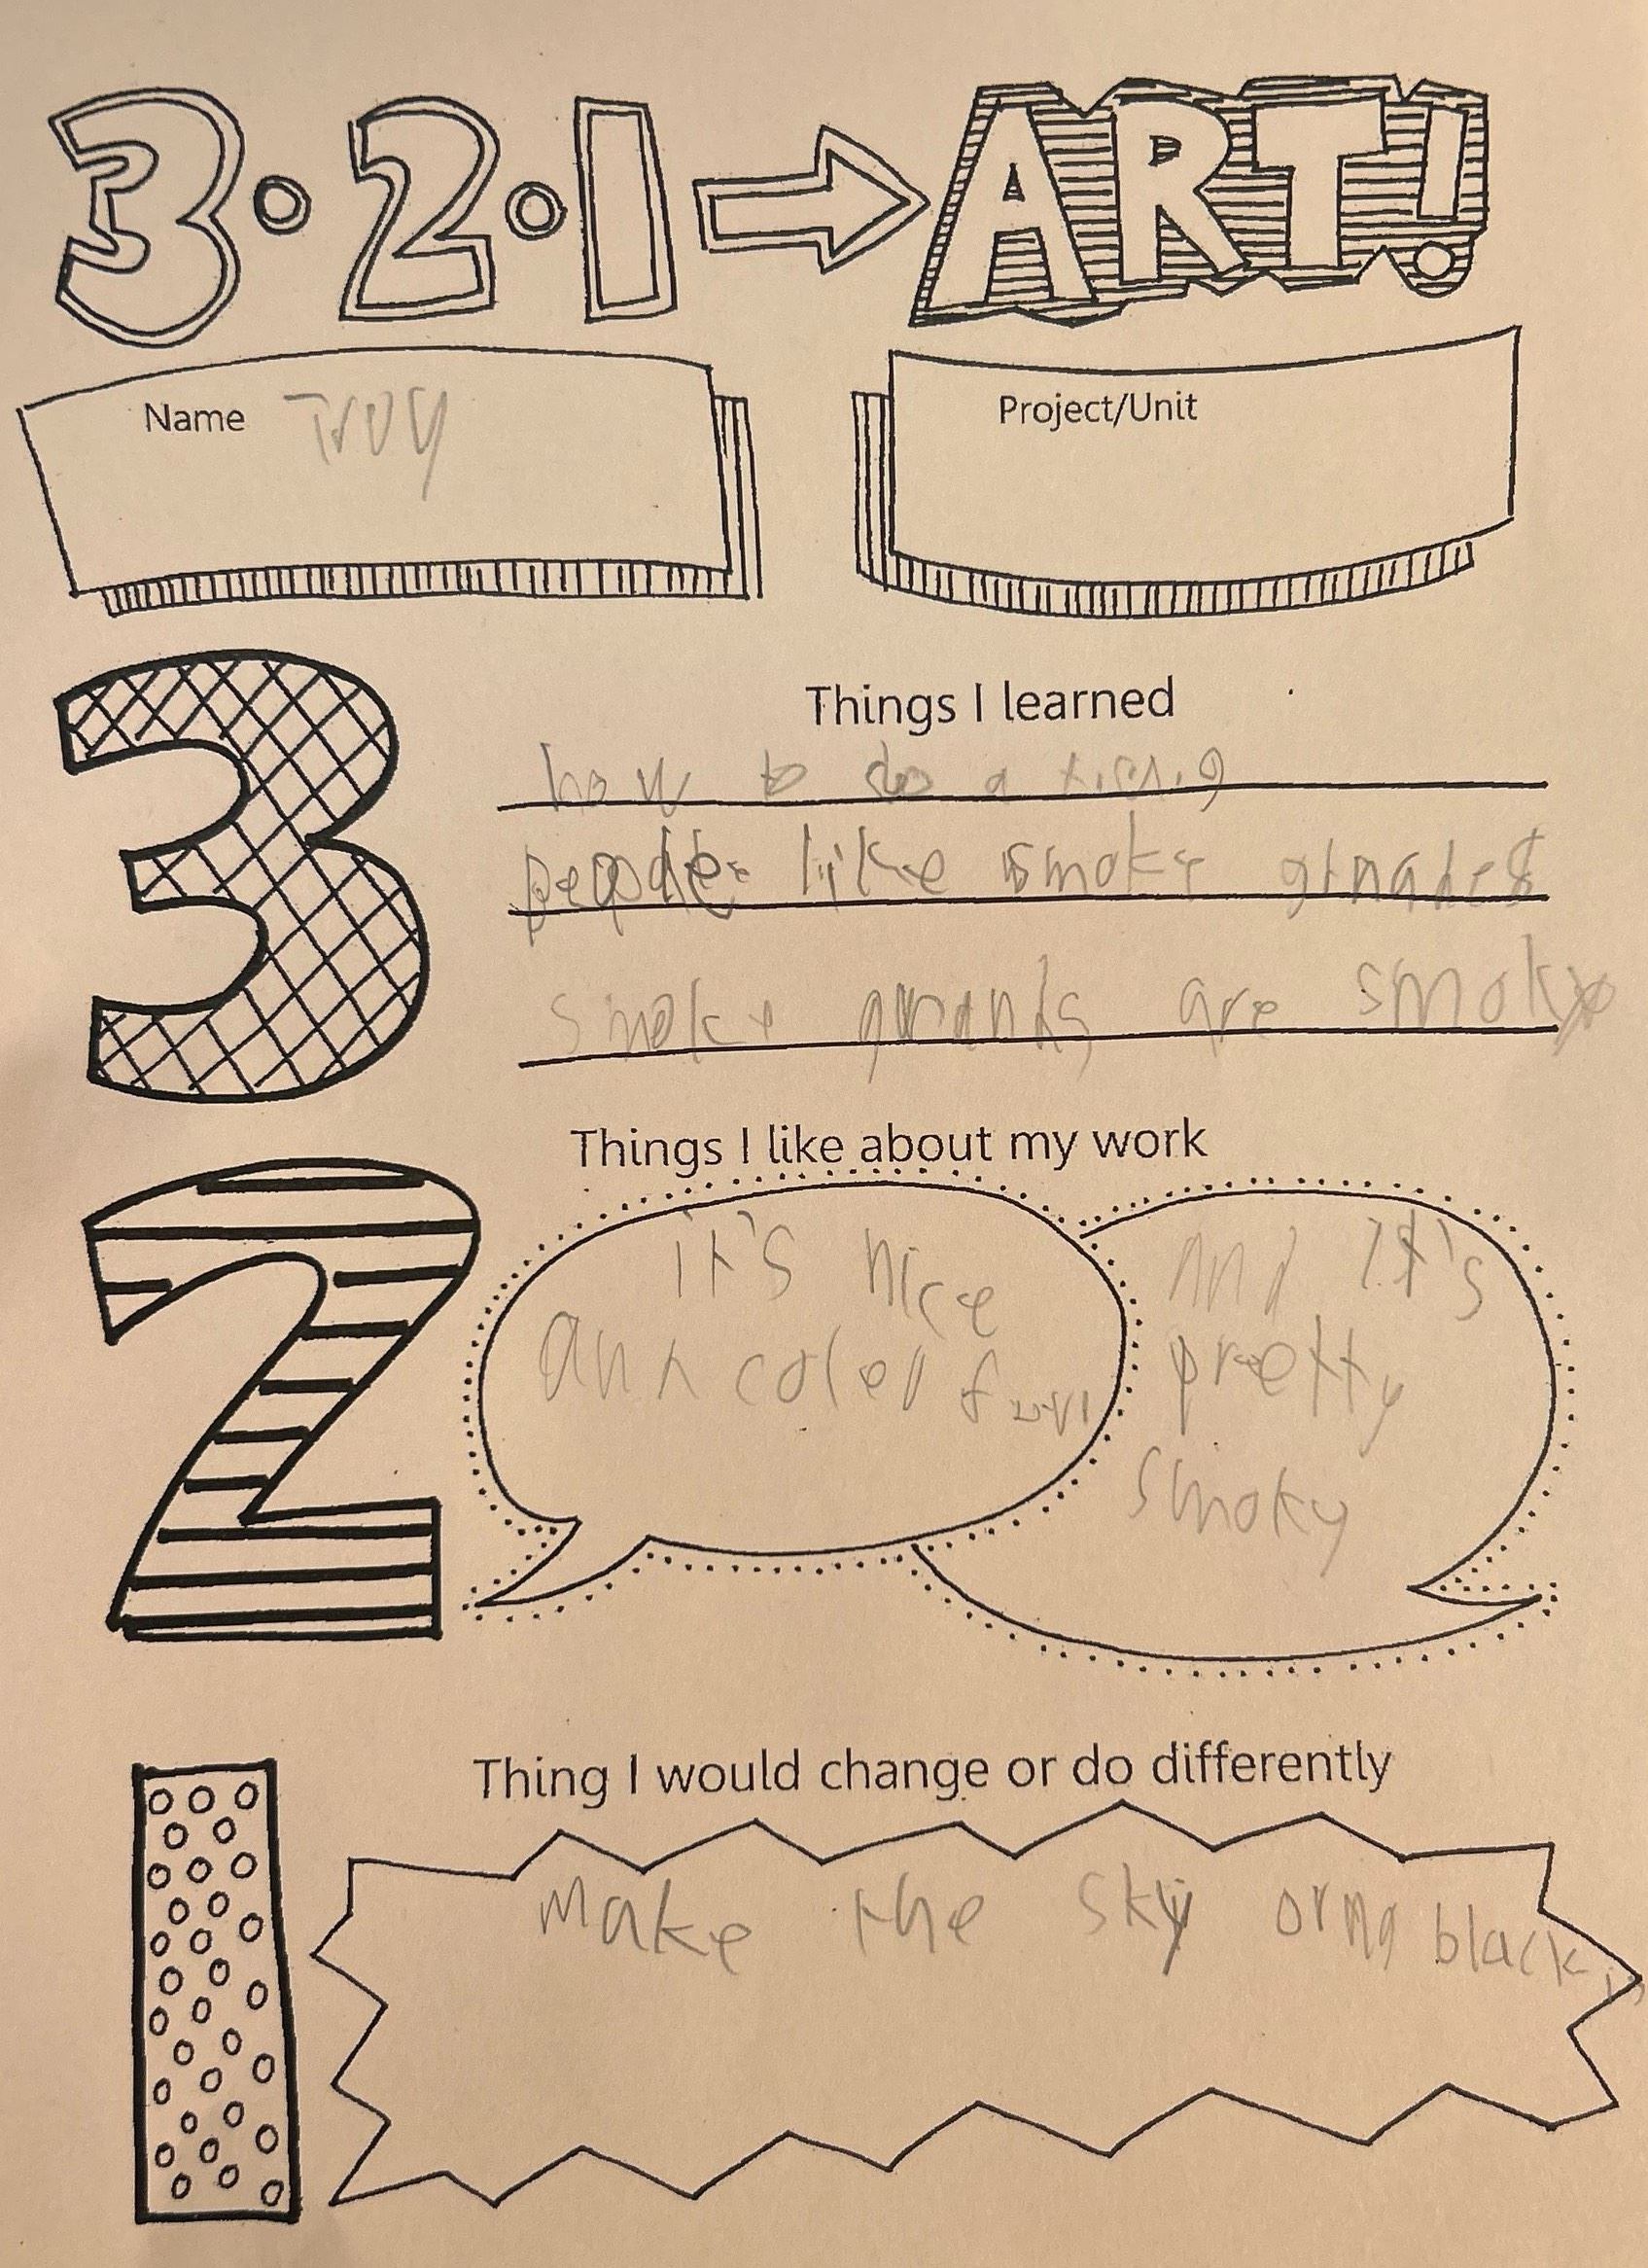 3·2·1 → ART!
Name Troy
Project/Unit
3
Things I learned
how to do a
people like smoke grnades
smoke are smoky
2
Things I like about my work
it's nice
and color
and It's
pretty
smoky
1
Thing I would change or do differently
make the sky orng black